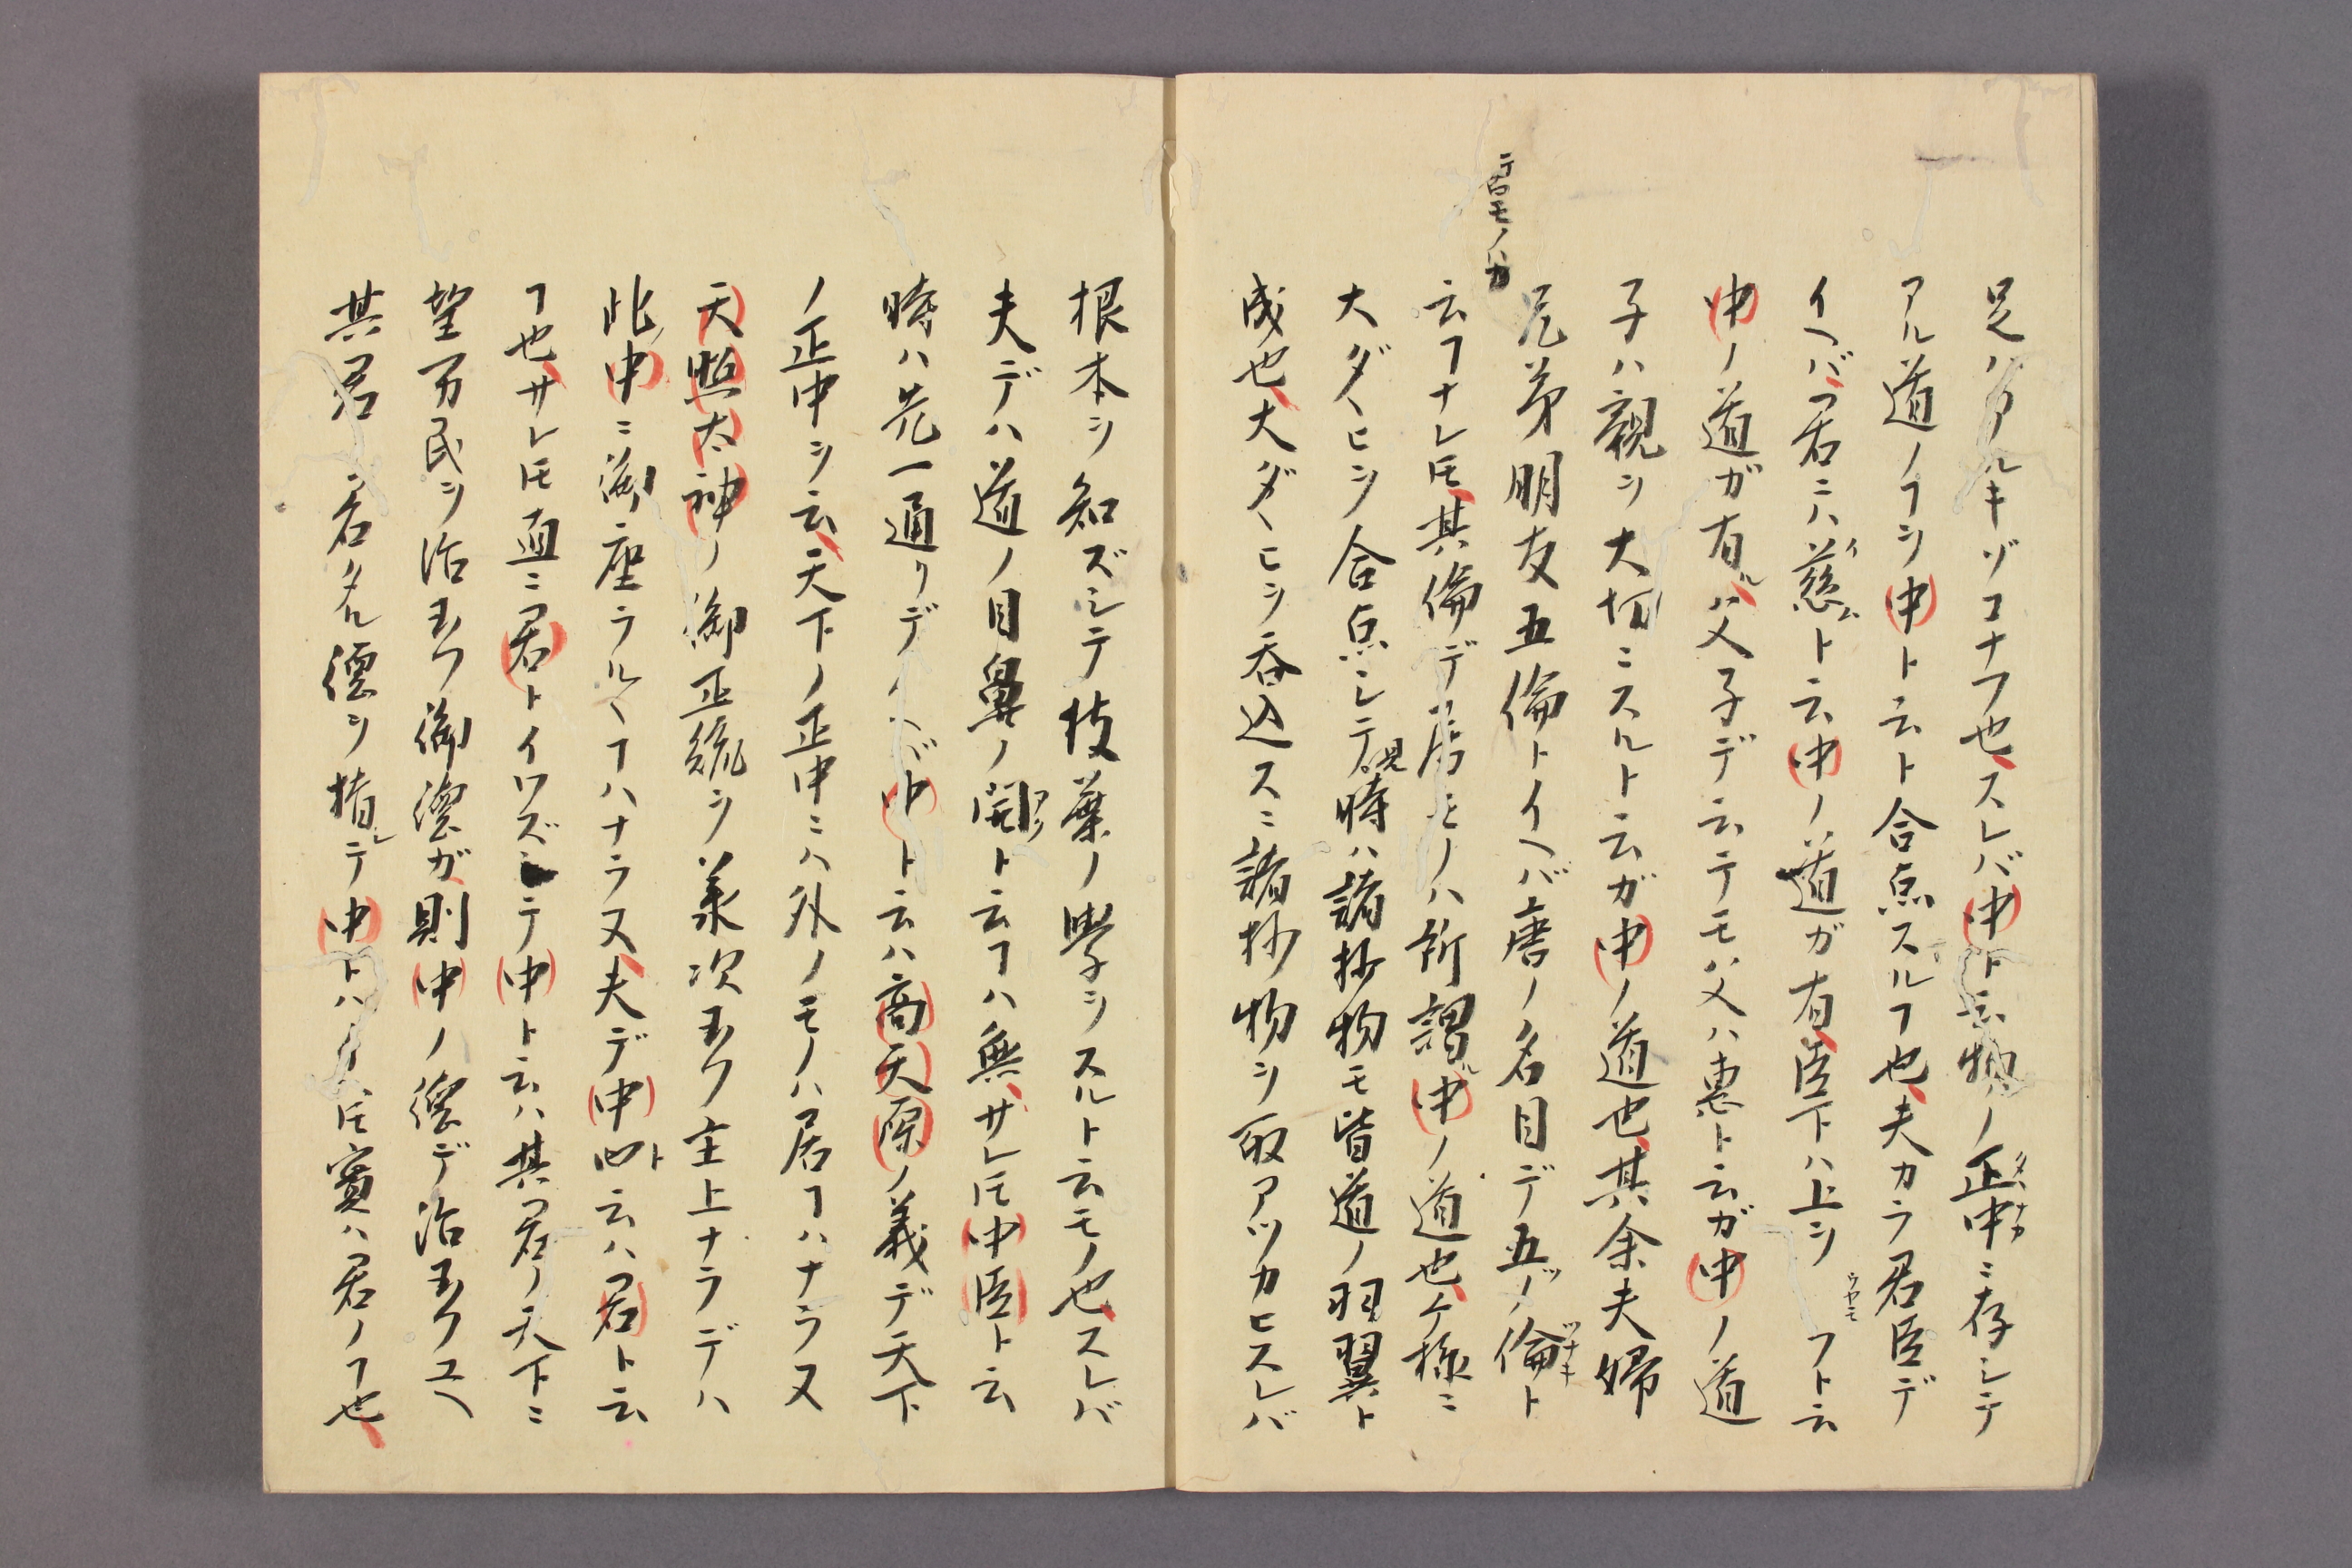 足ハアルキゾコナフ也スレバ中ト云物ノ正中ニ存シテ
アル道ノヿヲ中ト云ト合点スルヿ也夫カラ君臣デ
イヘバ君ニハ慈ト云中ノ道ガ有臣下ハ上ヲウヤモフト云
中ノ道ガ有ル父子デ云テモ父ハ恵ト云ガ中ノ道
子ハ親ヲ大切ニスルト云ガ中ノ道也其余夫婦
兄弟朋友五倫トイヘバ唐ノ名目デ五ツノ倫ト
云ヿナレ𪜈其倫デ居モノハ所謂ル中ノ道也ケ様ニ
大ダヽヒヲ合点シテ視時ハ諸抄物モ皆道ノ羽翼ト
成也大ダヽヒヲ呑込ズニ諸抄物ヲ取アツカヒスレバ
根本ヲ知ズシテ枝葉ノ學ヲスルト云モノ也スレバ
夫デハ道ノ目鼻ノ開クト云ヿハ無サレ𪜈中臣ト云
時ハ先一通リデイヘバ中ト云ハ高天原ノ義デ天下
ノ正中ヲ云天下ノ正中ニハ外ノモノハ居ヿハナラヌ
天照太神ノ御正統ヲ羕次玉フ主上ナラデハ
此中ニ御座ラルヽヿハナラヌ夫デ中心ト云ハ君ト云
ヿ也サレ𪜈直ニ君トイワズシテ中ト云ハ其君ノ天下ニ
望万民ヲ治玉フ御德ガ則中ノ德デ治玉フユヘ
其君ノ君タル德ヲ指シテ中トハイヘ𪜈實ハ君ノヿ也